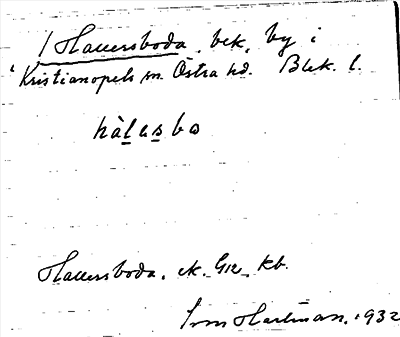 Hallersboda, bek. by i
Kristianopels sn. Östra hd. Blek. l.
hàlasbo
Hallersboda, ek. G12 kb.
Hartman, 1932